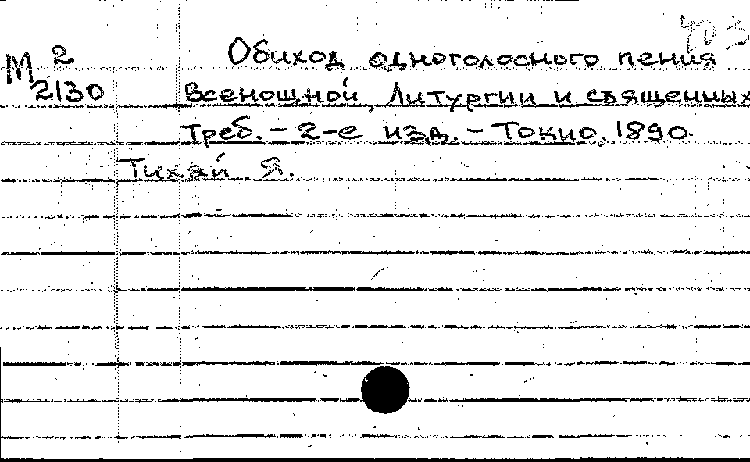 М 2
2130
Обиход одноголосного пения
Всенощной, Литургии и священных
Треб. - 2-е изд. - Токио, 1890.
Тихай Я.